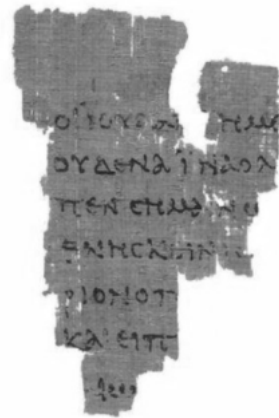 ΟΙΪΟΥΔΑΙ ΗΜΕ
ΟΥΔΕΝΑΪΝΑΟΛ
ΠΕΝCΗΜΑΙΝΩ
ΘΝΗCΚΕΙΝ
ΡΙΟΝΟΠ
ΚΑΙΕΙΠ